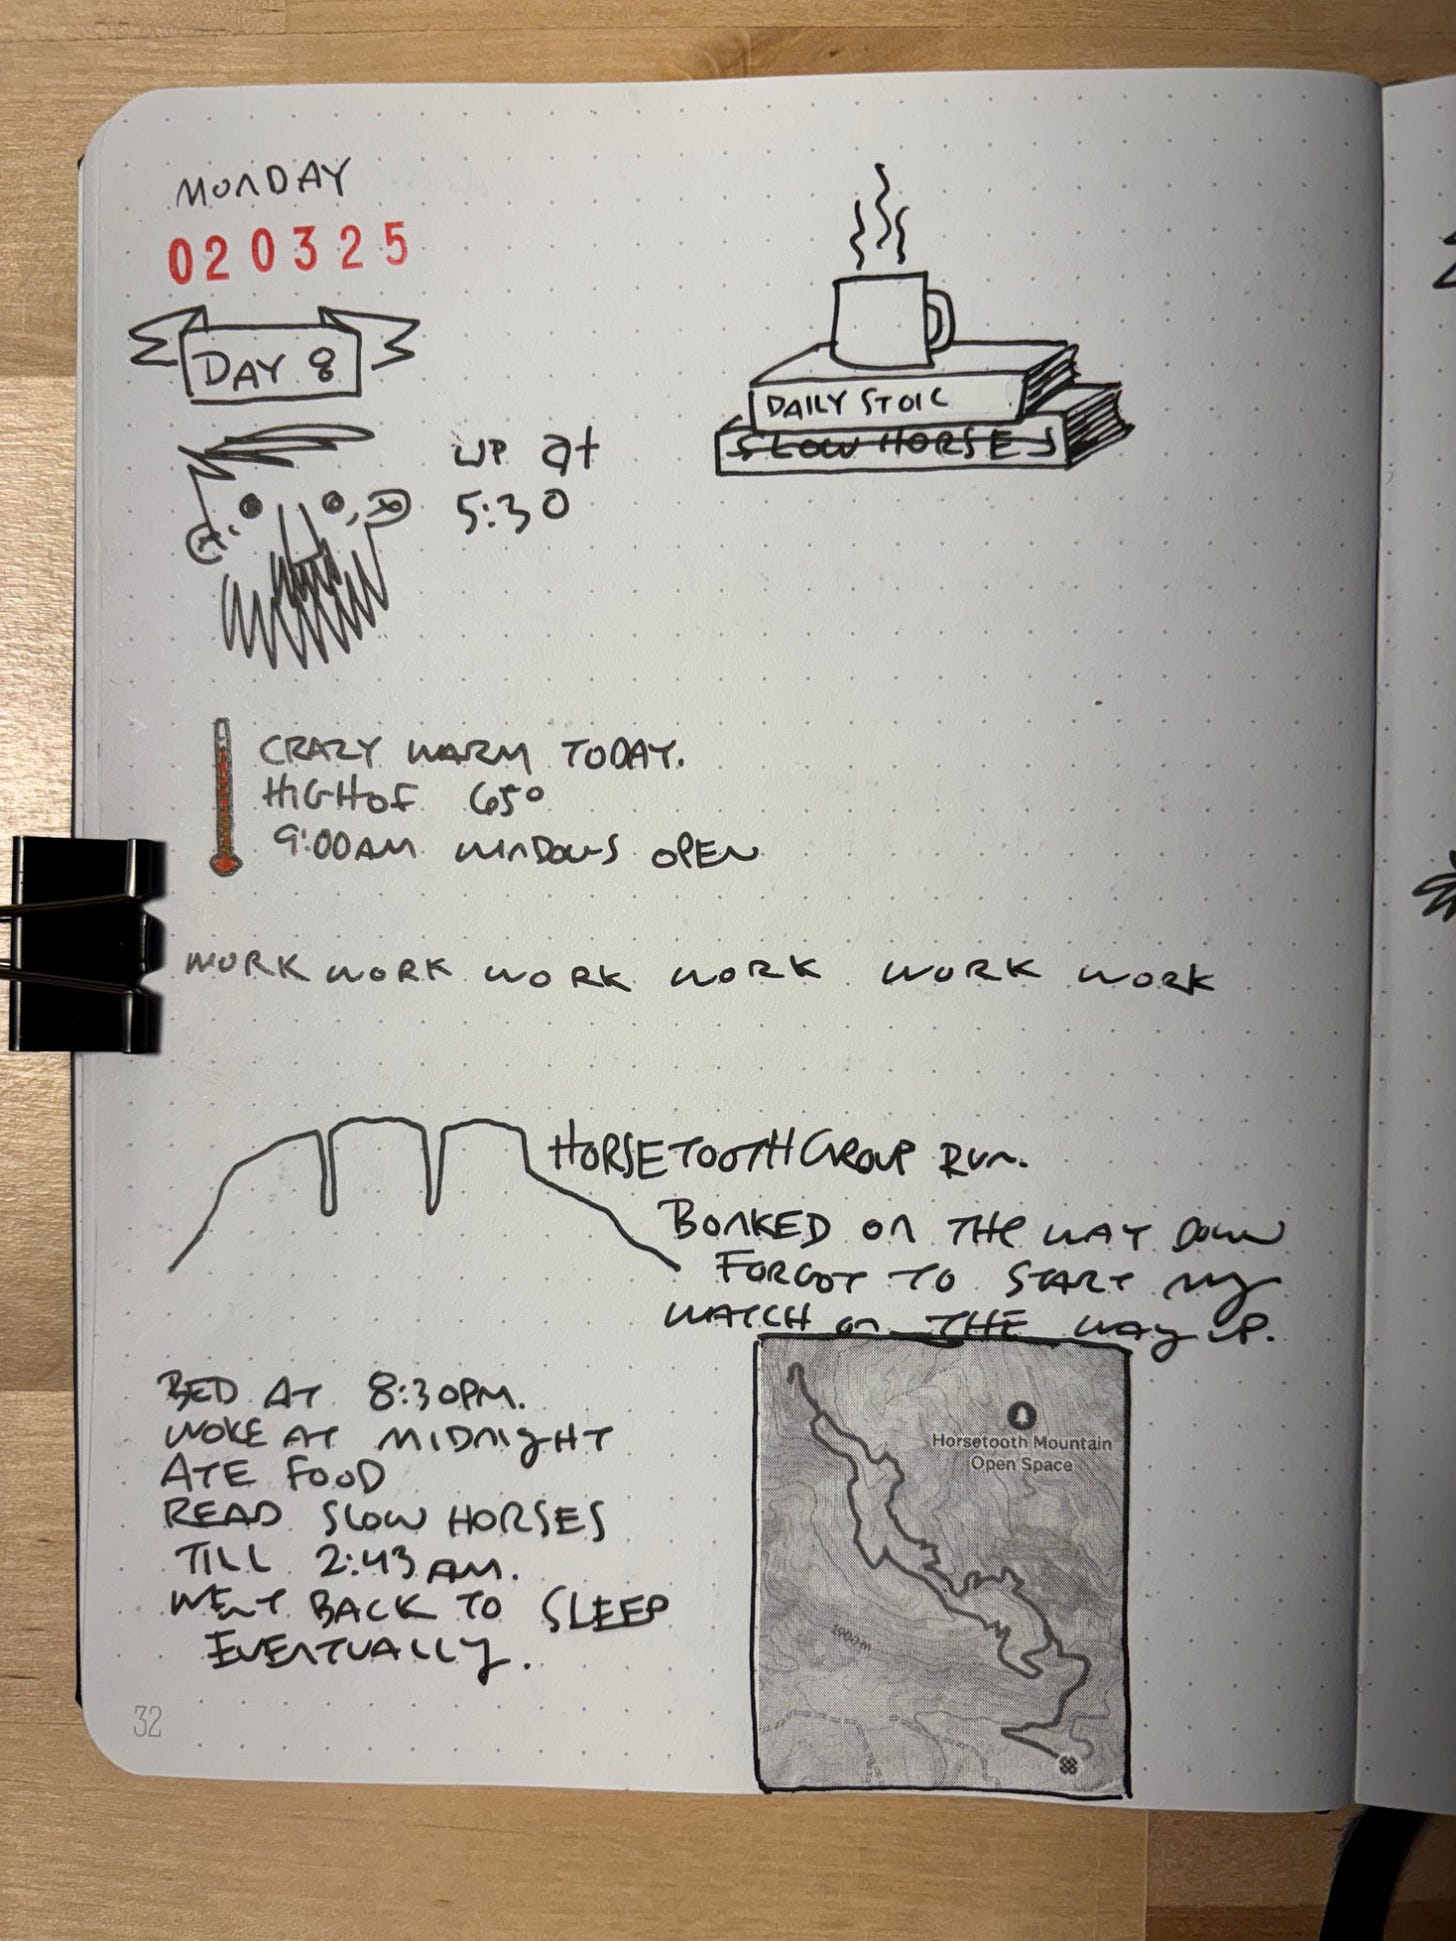 MONDAY
020325
DAY 8
UP at
5:30
DAILY STOIC
SLOW HORSES
CRAZY WARM TODAY.
HIGH OF 65°
9:00AM WINDOWS OPEN
WORK WORK WORK WORK WORK WORK
HORSETOOTH GROUP RUN.
BONKED ON THE WAY DOWN
FORGOT TO START MY
WATCH ON THE WAY UP.
BED AT 8:30PM.
WOKE AT MIDNIGHT
ATE FOOD
READ SLOW HORSES
TILL 2:43AM.
WENT BACK TO SLEEP
EVENTUALLY.
Horsetooth Mountain
Open Space
1900 m
32